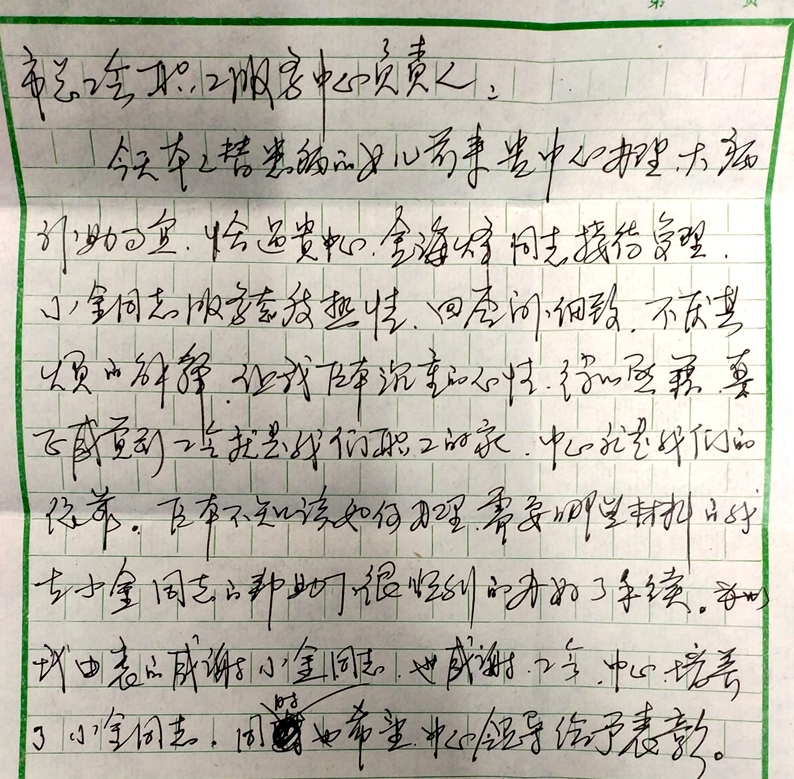 第 页
市总工会职工服务中心负责人:
今天本人替患病的女儿前来贵中心办理大病
补助事宜,恰遇贵中心金海峰同志接待受理,
小金同志服务态度热情,回答问题细致,不厌其
烦的解释,让我原本沉重的心情,得以慰藉,真
正感觉到工会就是我们职工的家,中心就是我们的
依靠。原本不知该如何办理,需要哪些材料的我
在小金同志的帮助下很顺利的办好了手续。
我由衷的感谢小金同志,也感谢工会、中心培养
了小金同志,同时也希望中心领导给予表彰。